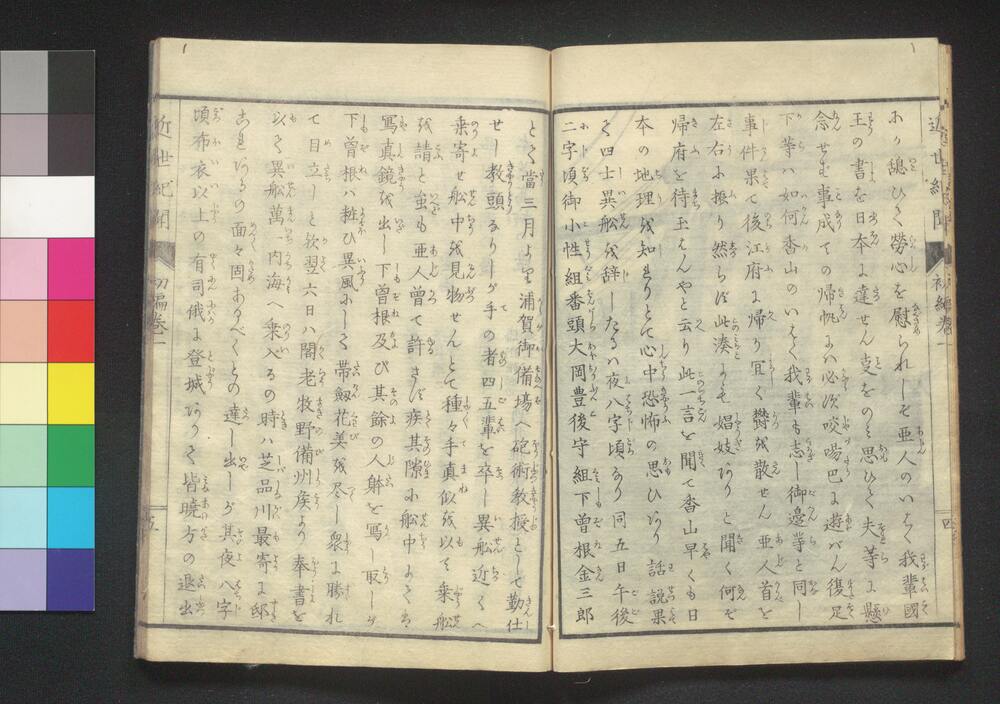 近世紀聞 初編卷一 四
ホか聴ひて勞心を慰られしぞ亜人のいはく我輩國
王の書を日本に達せん支をのミ思ひて夫等に懸
念せむ事成ての帰帆にハ必ず咬𠺕吧に遊バん復足
下等ハ如何香山のいはく我輩も志し御邊等と同し
事件果て後江府に帰り冝く欝を散せん 亜人首を
左右に振り然らば此湊よも娼妓ありと聞く何ぞ
帰府を待玉はんやと云り此一言を聞て香山早くも日
本の地理を知れりとて心中恐怖の思ひあり 話説果
て四士異船を辞したるハ夜八字頃なり同五日午後
二字頃御小性組番頭大岡豊後守組下曽根金三郎
とて當三月より浦賀御備場へ砲術教授として勤仕
せし教頭なりしが手の者四五輩を卒し異船近くへ
乗寄せ船中を見物せんとて種々手真似を以て乗船
を請と虽も亜人曽て許さず疾其隙に船中よりハ
寫真鏡を出し下曽根及び其餘の人躰を寫し取しが
下曽根ハ粧ひ異風にして帯劔花美を尽し衆に勝れ
て目立しと欤翌六日ハ閣老牧野備州矦より奉書を
以て異船萬一内海へ乗入るの時ハ芝品川最寄に邸
これあるの面々固あるべくとの達し出しが其夜八字
頃布衣以上の有司俄に登城ありて皆暁方の退出
近世紀聞 初編卷一 五